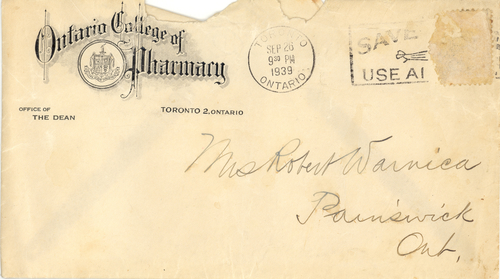 Ontario College of
Pharmacy
OFFICE OF
THE DEAN
TORONTO 2, ONTARIO
TORONTO
SEP 26
9 30 PM
1939
ONTARIO
SAVE
USE AI
Mrs Robert Warnica
Painswick
Ont.